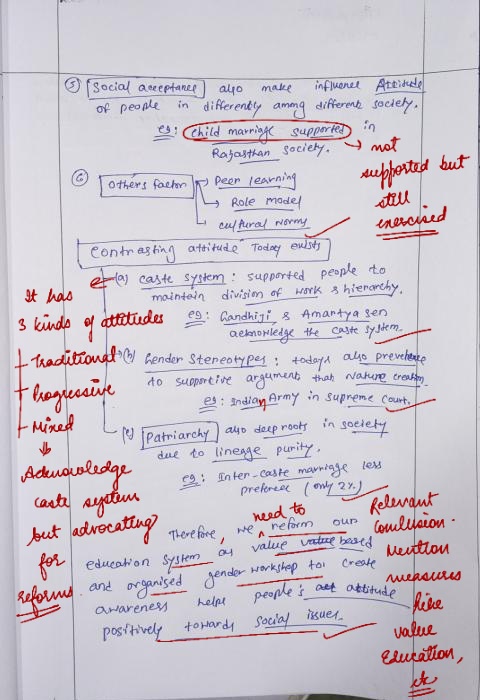 (5) Social acceptance also make influence Attitude
of people in differently among different society.
eg: child marriage supported in
Rajasthan society.
→ not
supported but
still
exercised
(6) Others factor → Peer learning
→ Role model
→ cultural norms
Contrasting attitude Today exists
(a) caste system : supported people to
maintain division of work & hierarchy.
eg: Gandhiji & Amartya sen
acknowledge the caste system.
It has
3 kinds of attitudes
- Traditional
- Progressive
- Mixed
↓
Acknowledge
caste system
but advocating
for
reforms.
(b) Gender Stereotypes : todays also prevelence
to supportive arguments that Nature creation.
eg: Indian Army in supreme court.
(c) Patriarchy also deep roots in society
due to lineage purity.
eg: Inter-caste marriage less
preferee (only 2%)
Therefore, we need to reform our
education system as value value based
and organised gender workshop to create
awareness helps people's att attitude
positively towards social issues.
Relevant
Conclusion.
Mention
measures
like
value
Education,
etc